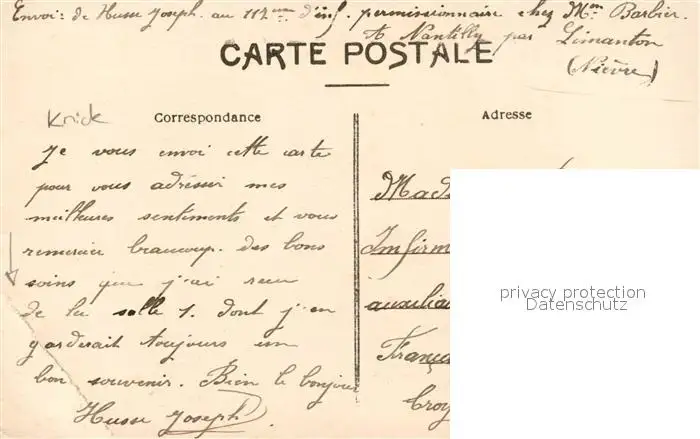 Envoi: de Husse Joseph. au 112ème d'inf. permissionnaire chez Mme Barbier.
A Nantilly par Limanton
(Nièvre)
CARTE POSTALE
Knick
Correspondance
Adresse
Je vous envoi cette carte
pour vous adresser mes
meilleures sentiments et vous
remercier beaucoup. des bons
soins que j'ai reçu
de la salle 1. dont j'en
garderait toujours un
bon souvenir. Bien le bonjour
Husse Joseph
Mad
Infirm
auxilia
França
Croi
privacy protection
Datenschutz